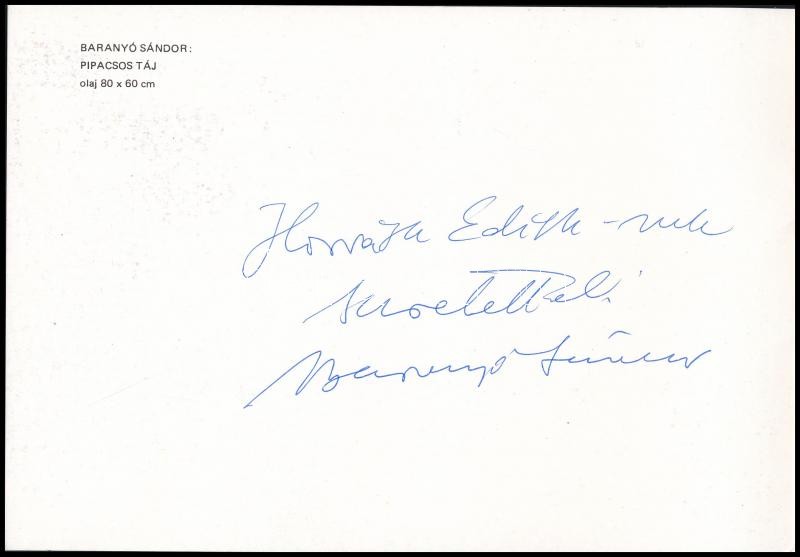 BARANYÓ SÁNDOR:
PIPACSOS TÁJ
olaj 80 x 60 cm
Horváth Edith-nek
szeretettel:
Baranyó Sándor